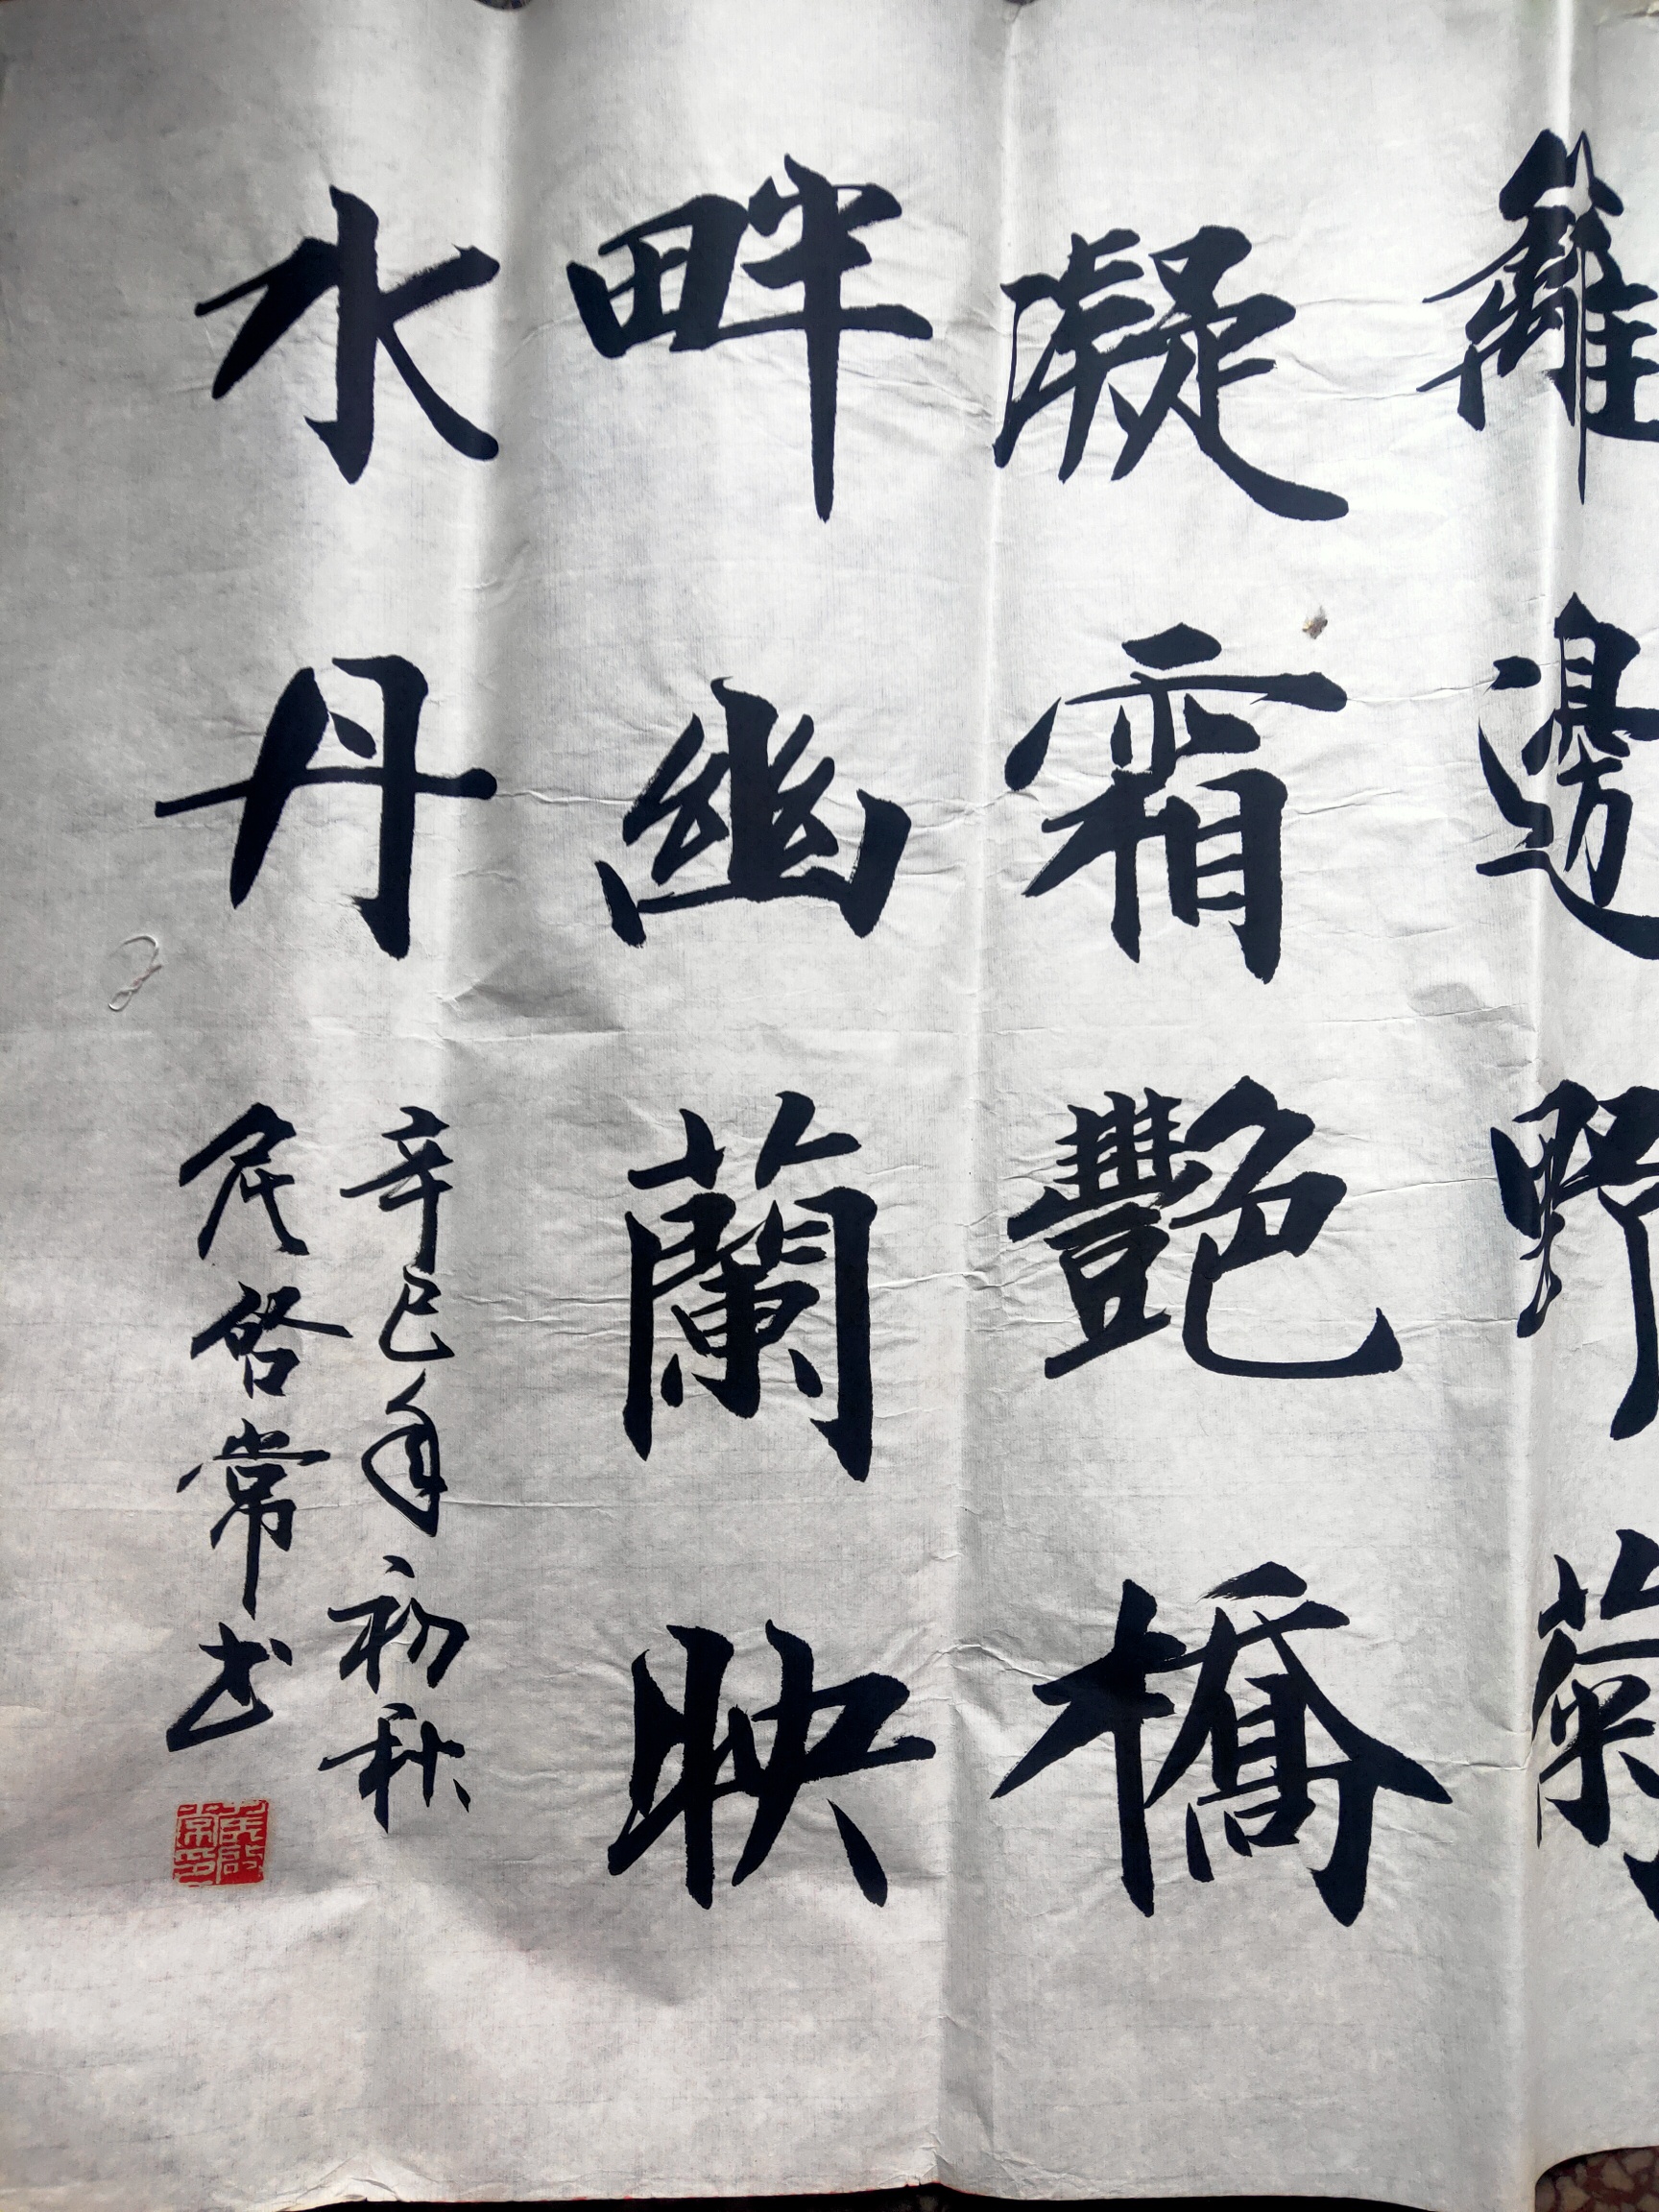 籬邊野菊
凝霜艷橋
畔幽蘭映
水丹
辛巳年初秋
啓常书